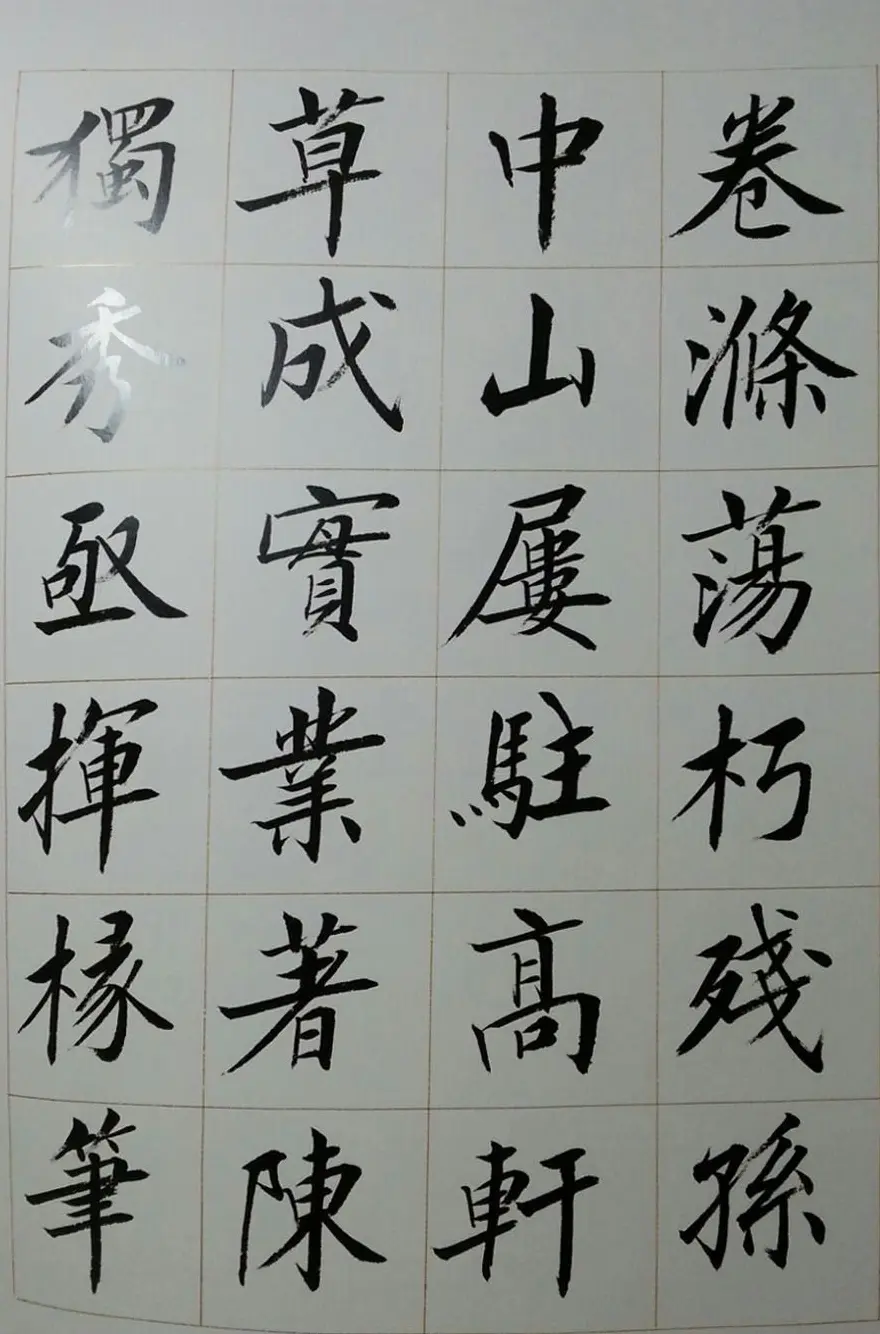 卷滌蕩朽殘孫
中山屢駐高軒
草成實業著陳
獨秀亟揮椽筆